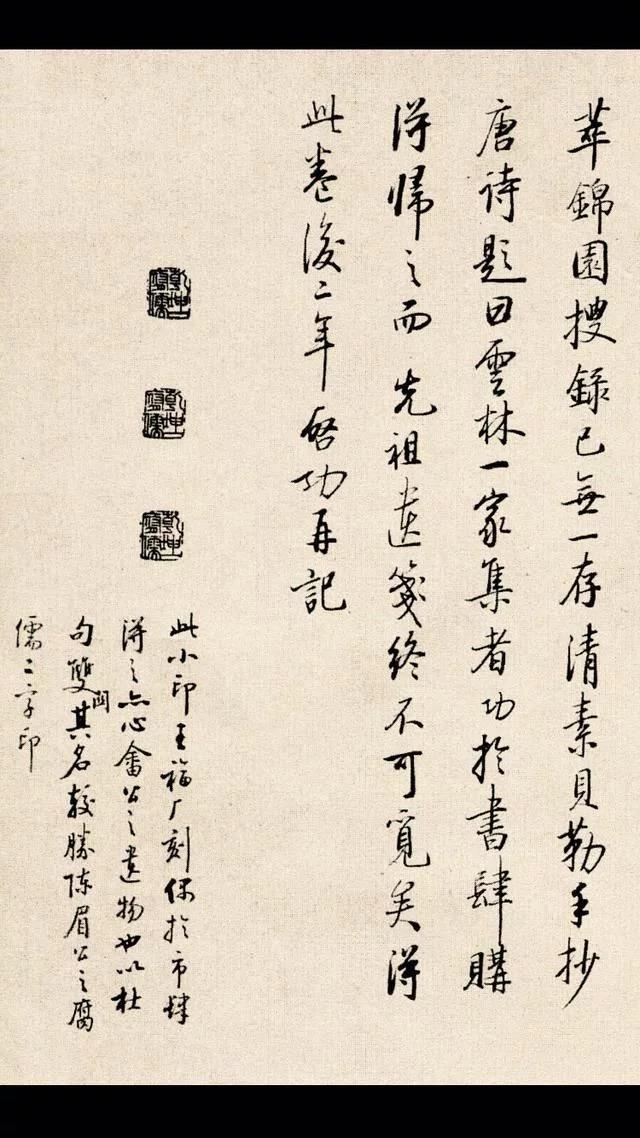 萃錦園搜錄已無一存清素貝勒手抄
唐詩題曰雲林一家集者功於書肆購
得歸之而先祖遺箋終不可覓矣得
此卷後二年啓功再記
乾坤
腐儒
乾坤
腐儒
乾坤
腐儒
此小印王福厂刻偶於市肆
得之亦心畬公之遺物也以杜
句雙關其名較勝陳眉公之腐
儒二字印